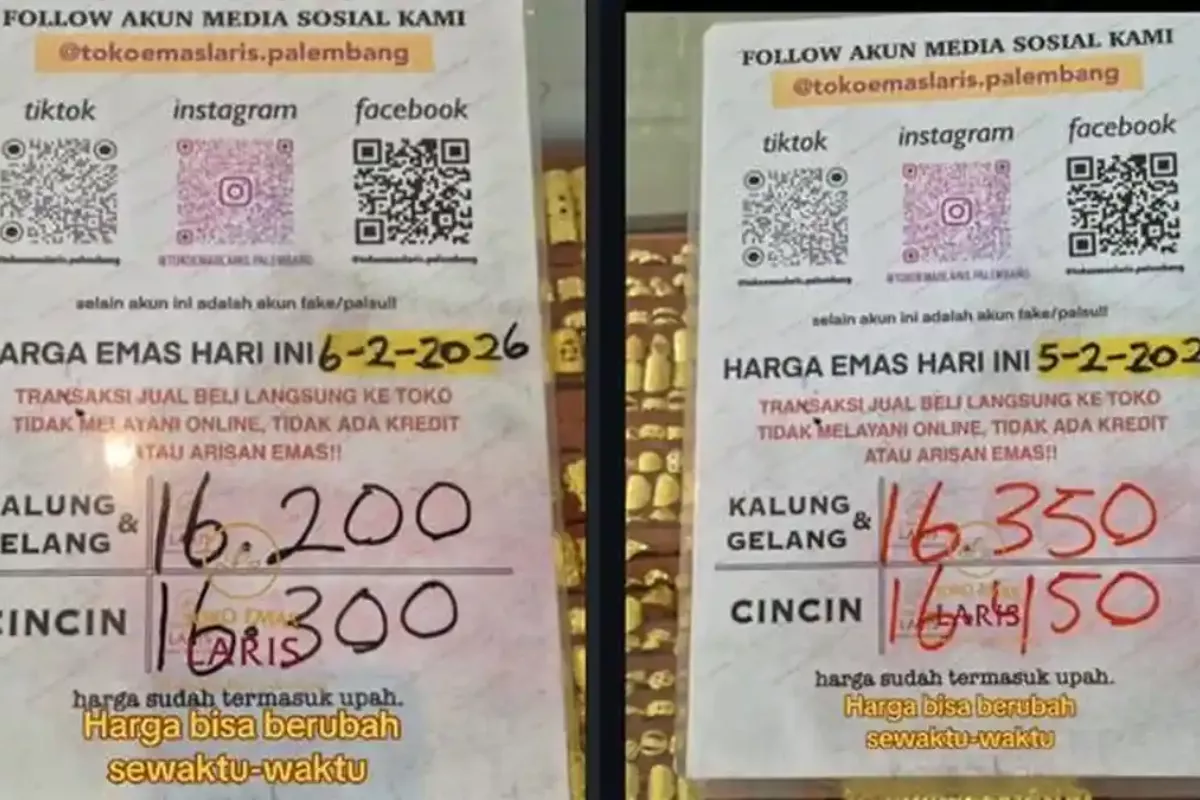 FOLLOW AKUN MEDIA SOSIAL KAMI
@tokoemaslaris.palembang
tiktok instagram facebook
@TOKOEMASLARIS.PALEMBANG
selain akun ini adalah akun fake/palsu!!
ARGA EMAS HARI INI 6-2-2026
TRANSAKSI JUAL BELI LANGSUNG KE TOKO
TIDAK MELAYANI ONLINE, TIDAK ADA KREDIT
ATAU ARISAN EMAS!!
ALUNG &
ELANG
16.200
CINCIN 16.300
LARIS
harga sudah termasuk upah.
Harga bisa berubah
sewaktu-waktu
FOLLOW AKUN MEDIA SOSIAL KAMI
@tokoemaslaris.palembang
tiktok instagram facebook
@TOKOEMASLARIS.PALEMBANG
selain akun ini adalah akun fake/palsu!!
HARGA EMAS HARI INI 5-2-202
TRANSAKSI JUAL BELI LANGSUNG KE TOKO
TIDAK MELAYANI ONLINE, TIDAK ADA KREDIT
ATAU ARISAN EMAS!!
KALUNG &
GELANG
16.350
CINCIN 16.150
LARIS
harga sudah termasuk upah.
Harga bisa berubah
sewaktu-waktu